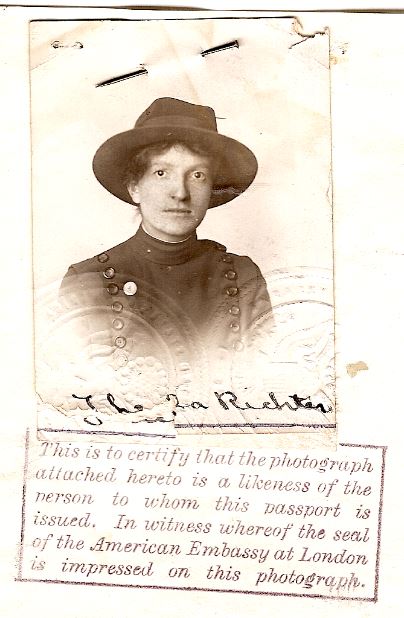 Richter
This is to certify that the photograph
attached hereto is a likeness of the
person to whom this passport is
issued. In witness whereof the seal
of the American Embassy at London
is impressed on this photograph.